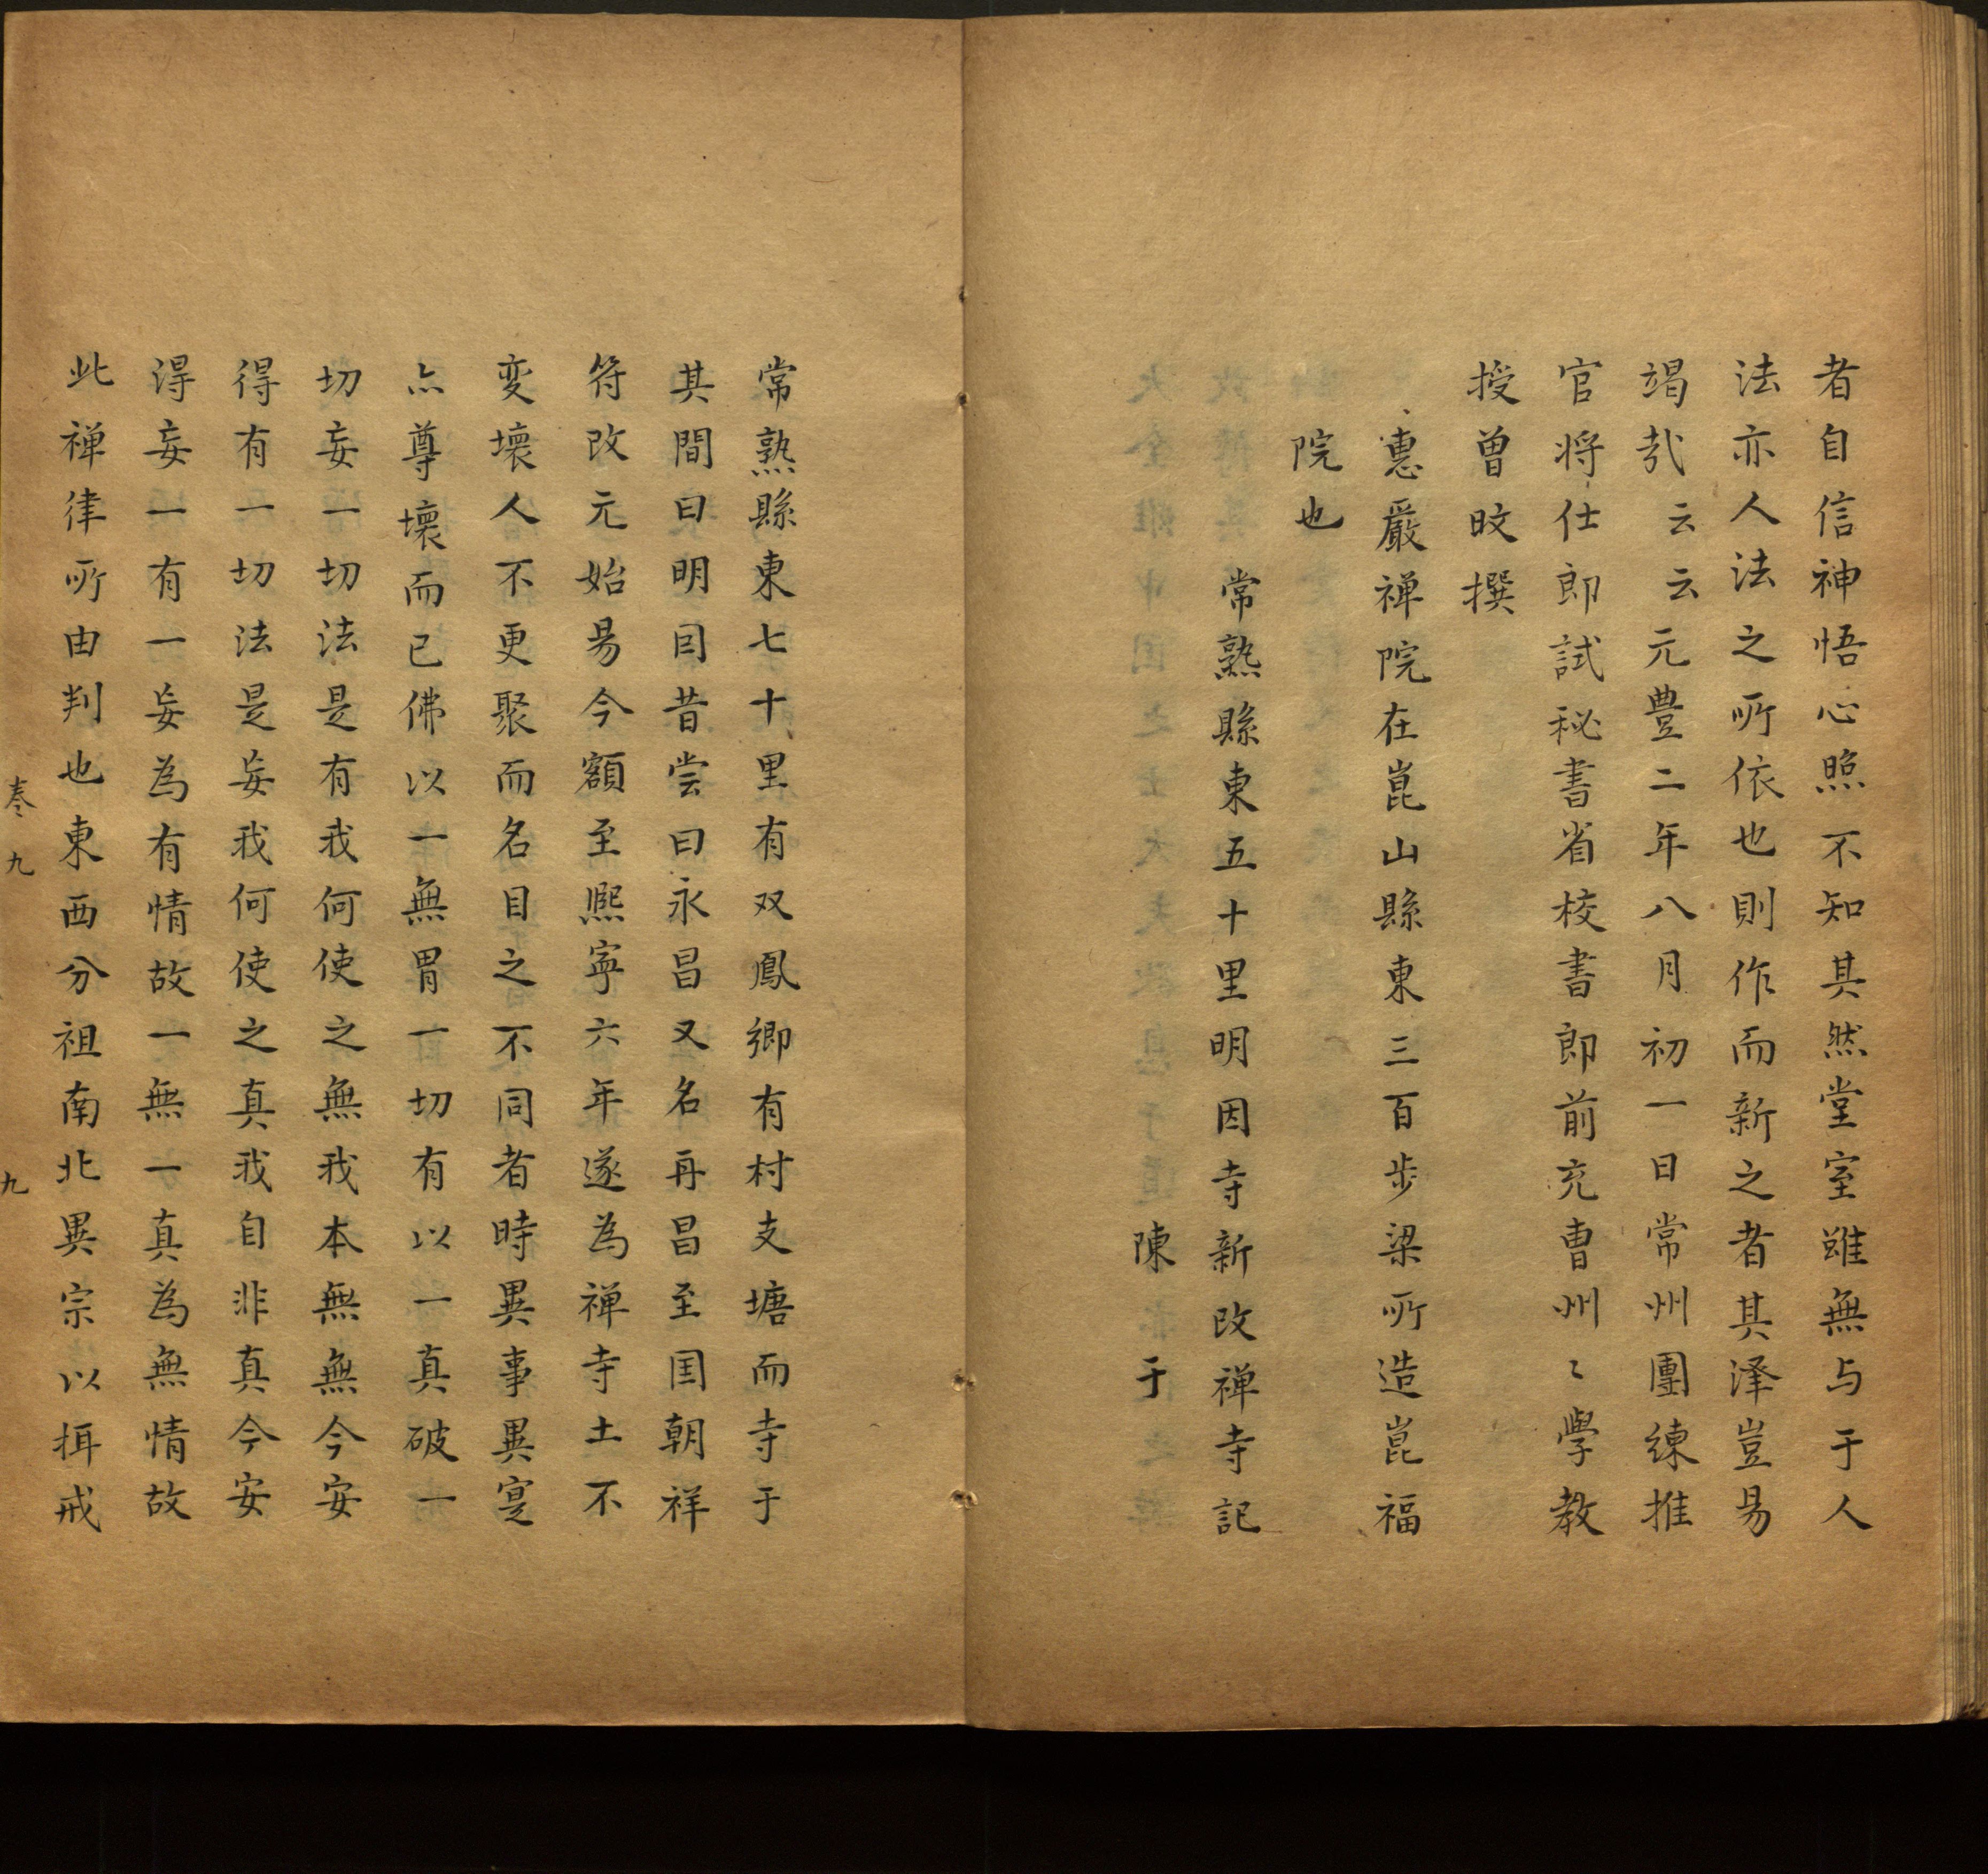 者自信神悟心照不知其然堂室雖無与于人
法亦人法之所依也則作而新之者其泽豈易
竭㢤云云元豊二年八月初一日常州團練推
官将仕郎試秘書省校書郎前充曹州〻學教
授曾旼撰
惠嚴禅院在崑山縣東三百步梁所造崑福
院也
常熟縣東五十里明因寺新改禅寺記
陳于
常熟縣東七十里有双鳳鄉有村支塘而寺于
其間曰明因昔尝曰永昌又名再昌至国朝祥
符改元始易今額至熈寧六年遂為禅寺土不
变壞人不更聚而名目之不同者時異事異寔
亦尊壞而已佛以一無胃一切有以一真破一
切妄一切法是有我何使之無我本無無今安
得有一切法是妄我何使之真我自非真今安
淂妄一有一妄為有情故一無一真為無情故
此禅律所由判也東西分祖南北異宗以揖戒
卷九
九